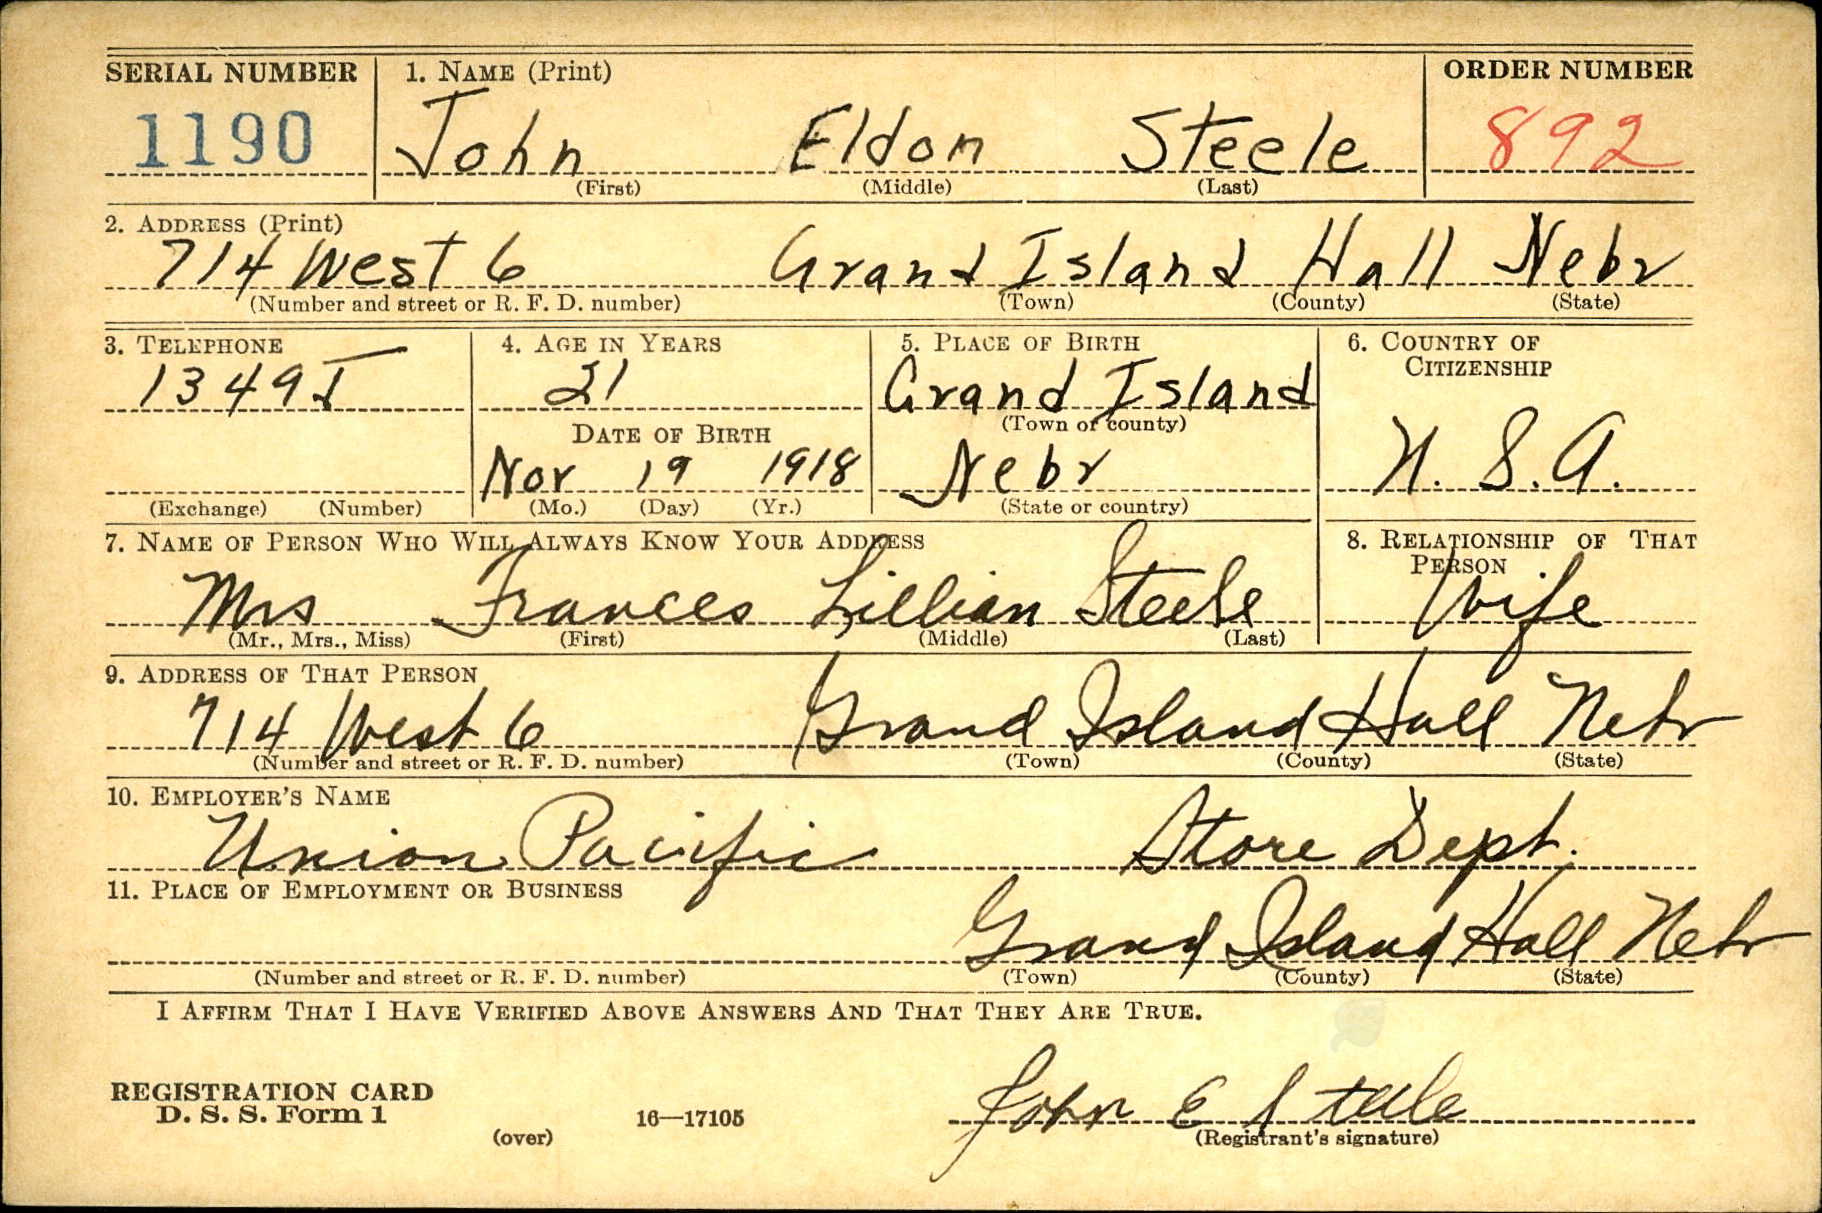 SERIAL NUMBER 1. NAME (Print) ORDER NUMBER
1190 John Eldon Steele 892
(First) (Middle) (Last)
2. ADDRESS (Print)
714 West 6 Grand Island Hall Nebr
(Number and street or R. F. D. number) (Town) (County) (State)
3. TELEPHONE 4. AGE IN YEARS 5. PLACE OF BIRTH 6. COUNTRY OF CITIZENSHIP
1349J 21 Grand Island
(Town or county)
DATE OF BIRTH
Nov 19 1918 Nebr U. S. A.
(Exchange) (Number) (Mo.) (Day) (Yr.) (State or country)
7. NAME OF PERSON WHO WILL ALWAYS KNOW YOUR ADDRESS 8. RELATIONSHIP OF THAT PERSON
Mrs Frances Lillian Steele Wife
(Mr., Mrs., Miss) (First) (Middle) (Last)
9. ADDRESS OF THAT PERSON
714 West 6 Grand Island Hall Nebr
(Number and street or R. F. D. number) (Town) (County) (State)
10. EMPLOYER'S NAME
Union Pacific Store Dept.
11. PLACE OF EMPLOYMENT OR BUSINESS
Grand Island Hall Nebr
(Number and street or R. F. D. number) (Town) (County) (State)
I AFFIRM THAT I HAVE VERIFIED ABOVE ANSWERS AND THAT THEY ARE TRUE.
REGISTRATION CARD
D. S. S. Form 1 16—17105 John E Steele
(over) (Registrant's signature)